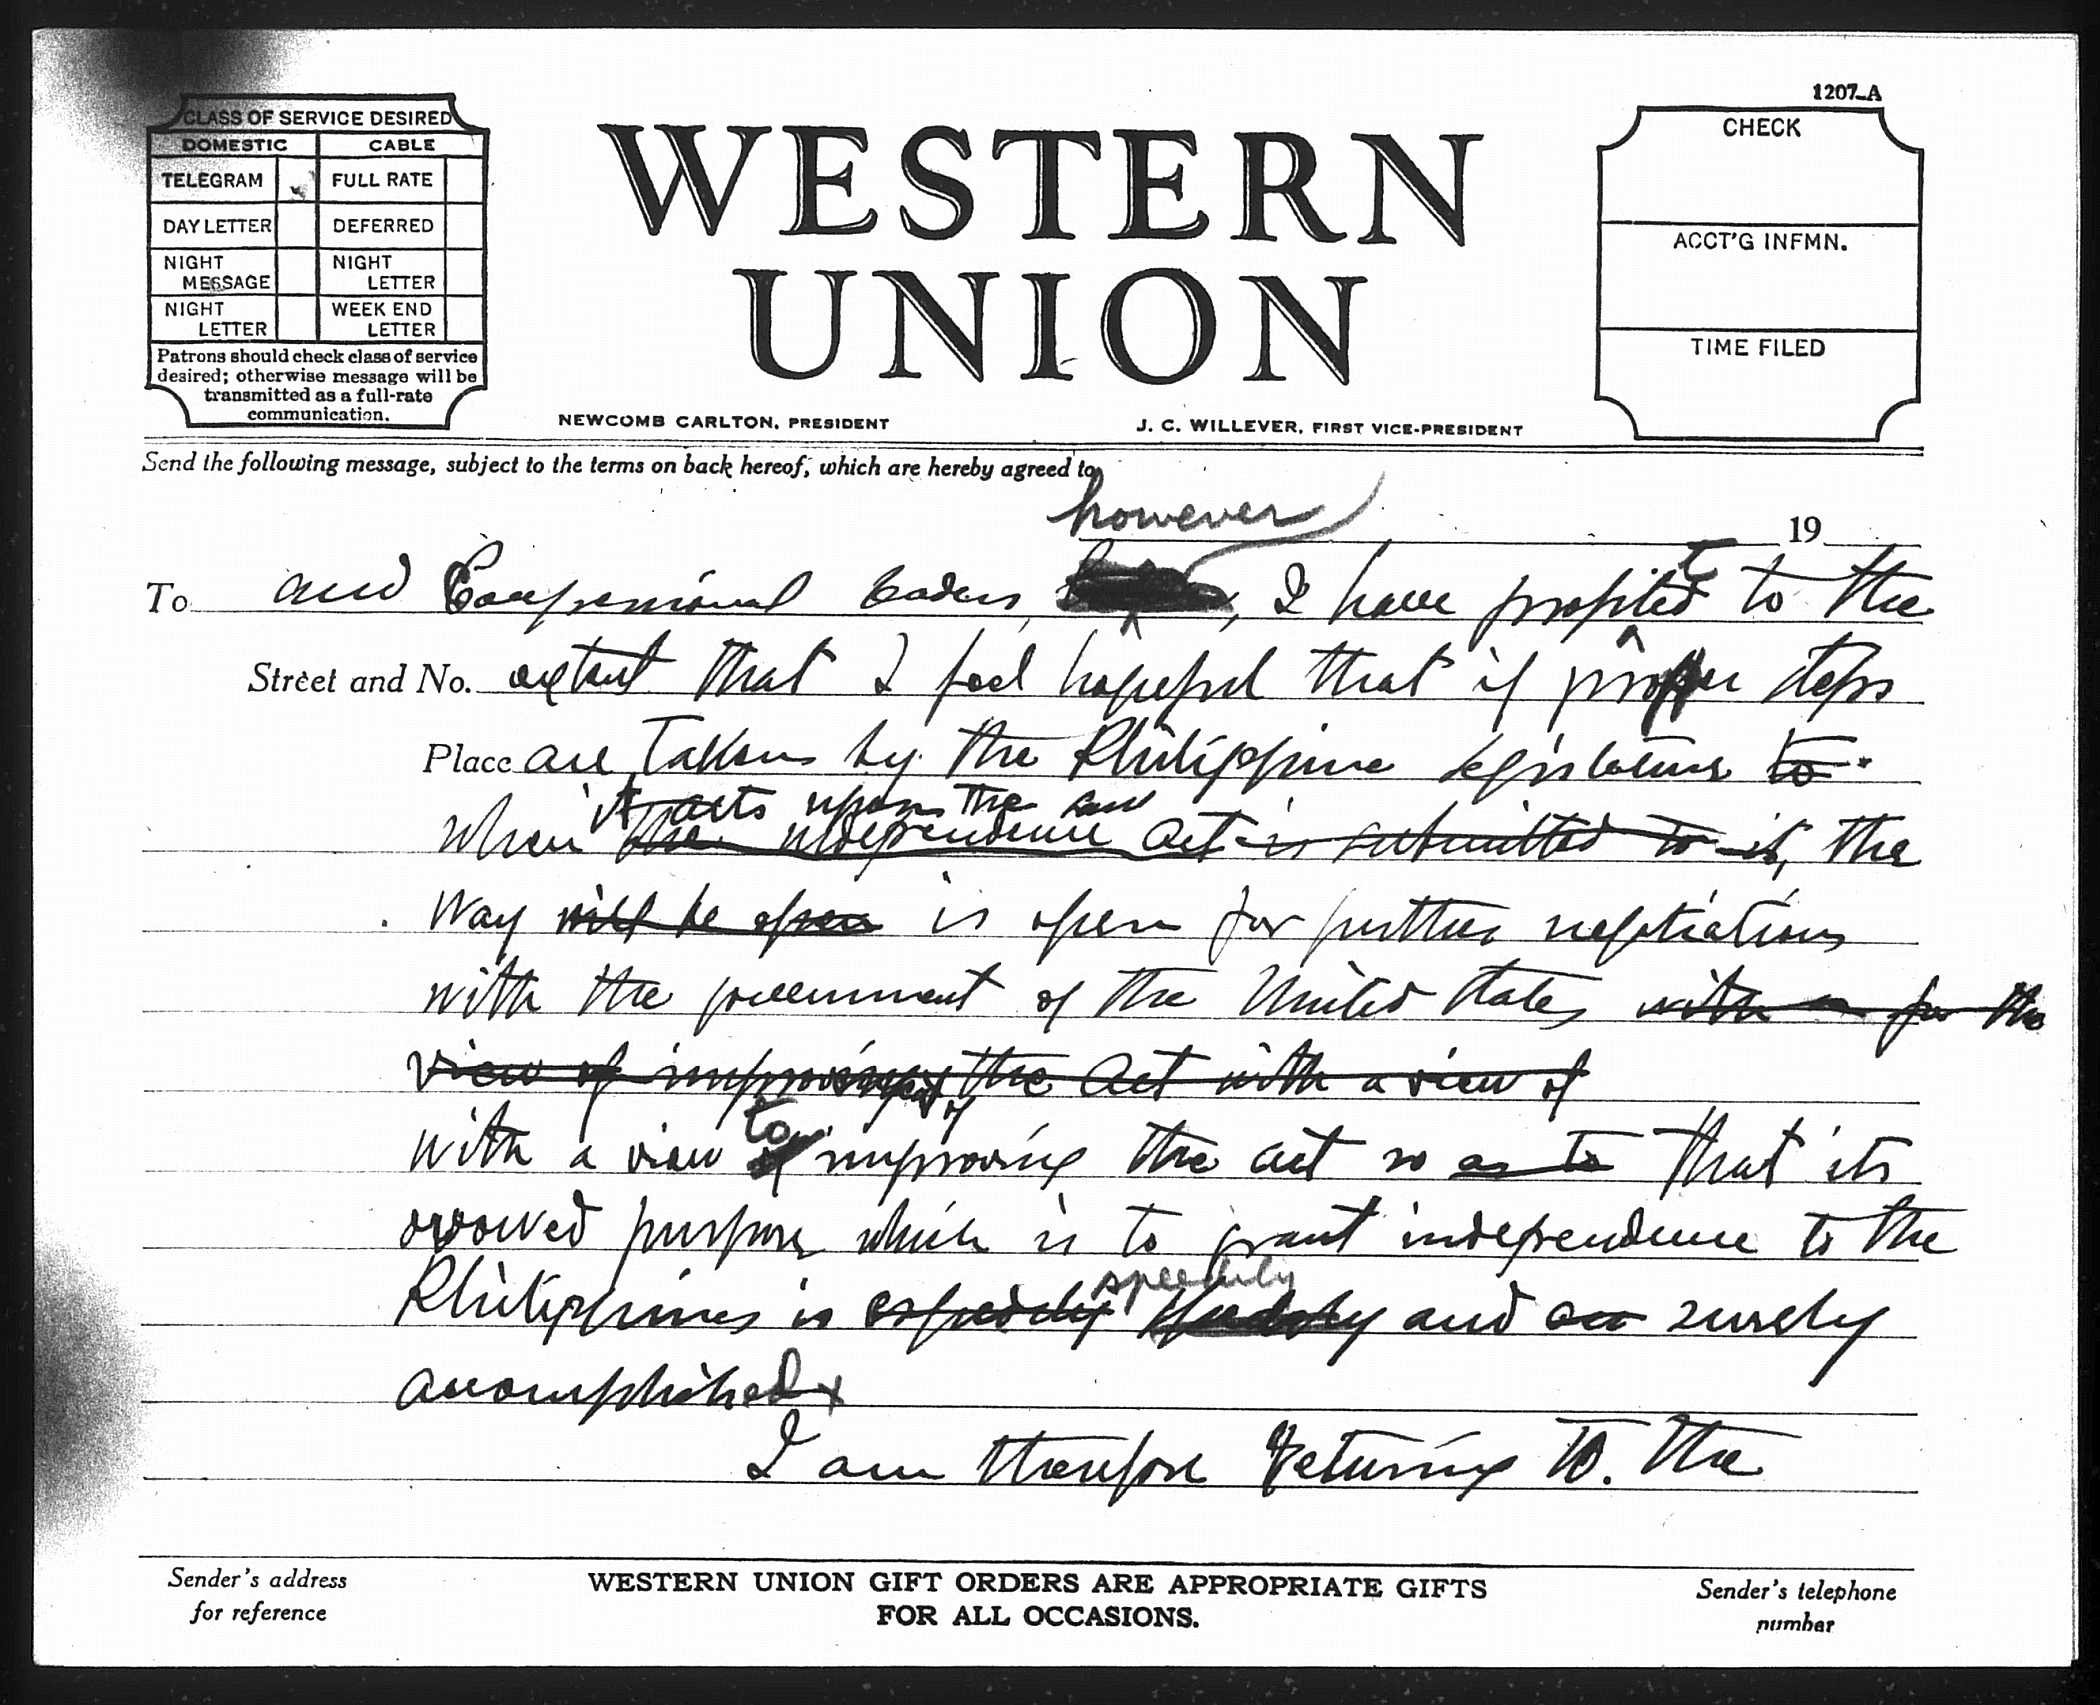 1207-A
CLASS OF SERVICE DESIRED
DOMESTIC CABLE
TELEGRAM FULL RATE
DAY LETTER DEFERRED
NIGHT MESSAGE NIGHT LETTER
NIGHT LETTER WEEK END LETTER
Patrons should check class of service
desired; otherwise message will be
transmitted as a full-rate
communication.
WESTERN
UNION
NEWCOMB CARLTON, PRESIDENT J. C. WILLEVER, FIRST VICE-PRESIDENT
CHECK
ACCT'G INFMN.
TIME FILED
Send the following message, subject to the terms on back hereof, which are hereby agreed to
however
19
To and Congressional leaders, I have profited to the
Street and No. extent that I feel hopeful that if proper steps
Place are taken by the Philippine Legislature to
it acts upon the said
when the independence act is submitted to it, the
way will be open is open for further negotiations
with the government of the United States with a for the
view of improving the Act with a view of
to
with a view of improving the act so as to that its
avowed purpose which is to grant independence to the
speedily
Philippines is and surely
accomplished x
I am therefore returning to. the
Sender's address
for reference
WESTERN UNION GIFT ORDERS ARE APPROPRIATE GIFTS
FOR ALL OCCASIONS.
Sender's telephone
number